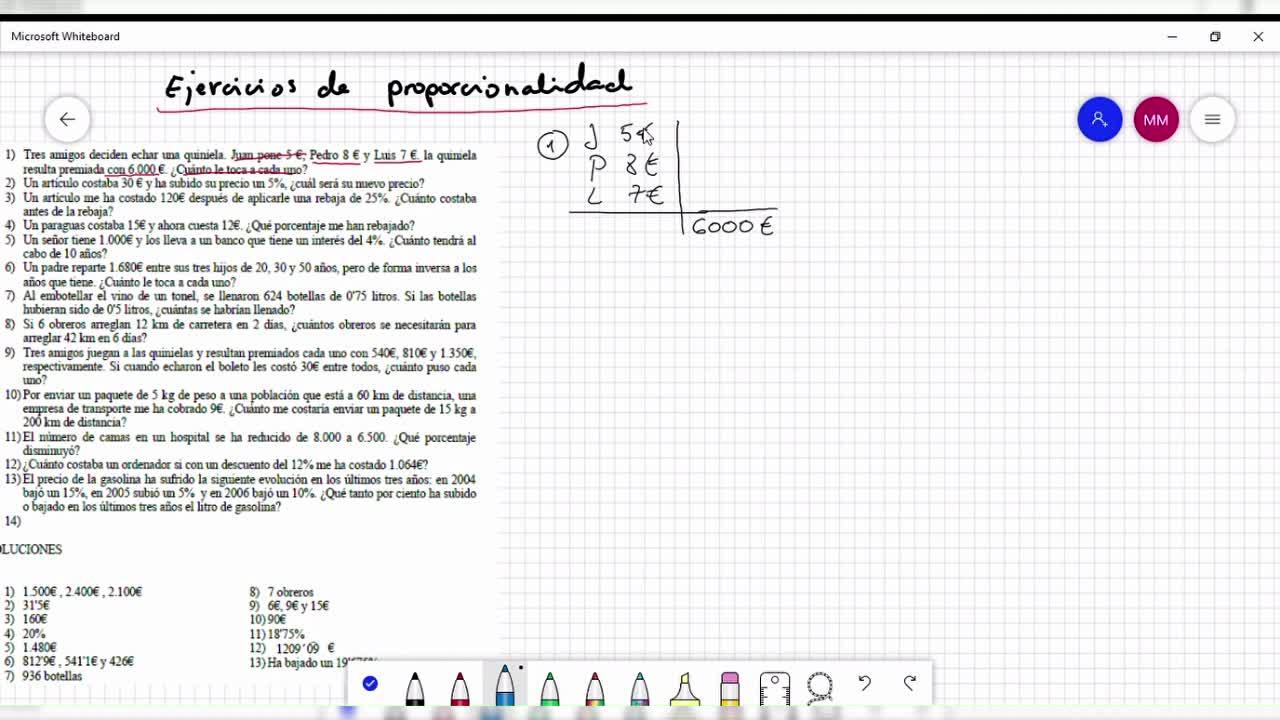 Microsoft Whiteboard
Ejercicios de proporcionalidad
MM
1) Tres amigos deciden echar una quiniela. Juan pone 5 €; Pedro 8 € y Luis 7 €. la quiniela
resulta premiada con 6.000 €. ¿Cuánto le toca a cada uno?
2) Un artículo costaba 30 € y ha subido su precio un 5%, ¿cuál será su nuevo precio?
3) Un artículo me ha costado 120€ después de aplicarle una rebaja de 25%. ¿Cuánto costaba
antes de la rebaja?
4) Un paraguas costaba 15€ y ahora cuesta 12€. ¿Qué porcentaje me han rebajado?
5) Un señor tiene 1.000€ y los lleva a un banco que tiene un interés del 4%. ¿Cuánto tendrá al
cabo de 10 años?
6) Un padre reparte 1.680€ entre sus tres hijos de 20, 30 y 50 años, pero de forma inversa a los
años que tiene. ¿Cuánto le toca a cada uno?
7) Al embotellar el vino de un tonel, se llenaron 624 botellas de 0'75 litros. Si las botellas
hubieran sido de 0'5 litros, ¿cuántas se habrían llenado?
8) Si 6 obreros arreglan 12 km de carretera en 2 días, ¿cuántos obreros se necesitarán para
arreglar 42 km en 6 días?
9) Tres amigos juegan a las quinielas y resultan premiados cada uno con 540€, 810€ y 1.350€,
respectivamente. Si cuando echaron el boleto les costó 30€ entre todos, ¿cuánto puso cada
uno?
10) Por enviar un paquete de 5 kg de peso a una población que está a 60 km de distancia, una
empresa de transporte me ha cobrado 9€. ¿Cuánto me costaría enviar un paquete de 15 kg a
200 km de distancia?
11) El número de camas en un hospital se ha reducido de 8.000 a 6.500. ¿Qué porcentaje
disminuyó?
12) ¿Cuánto costaba un ordenador si con un descuento del 12% me ha costado 1.064€?
13) El precio de la gasolina ha sufrido la siguiente evolución en los últimos tres años: en 2004
bajó un 15%, en 2005 subió un 5% y en 2006 bajó un 10%. ¿Qué tanto por ciento ha subido
o bajado en los últimos tres años el litro de gasolina?
14)
OLUCIONES
1) 1.500€ , 2.400€ , 2.100€
2) 31'5€
3) 160€
4) 20%
5) 1.480€
6) 812'9€ , 541'1€ y 426€
7) 936 botellas
8) 7 obreros
9) 6€, 9€ y 15€
10) 90€
11) 18'75%
12) 1209'09 €
13) Ha bajado un
1 J 5€
P 8€
L 7€
6000 €